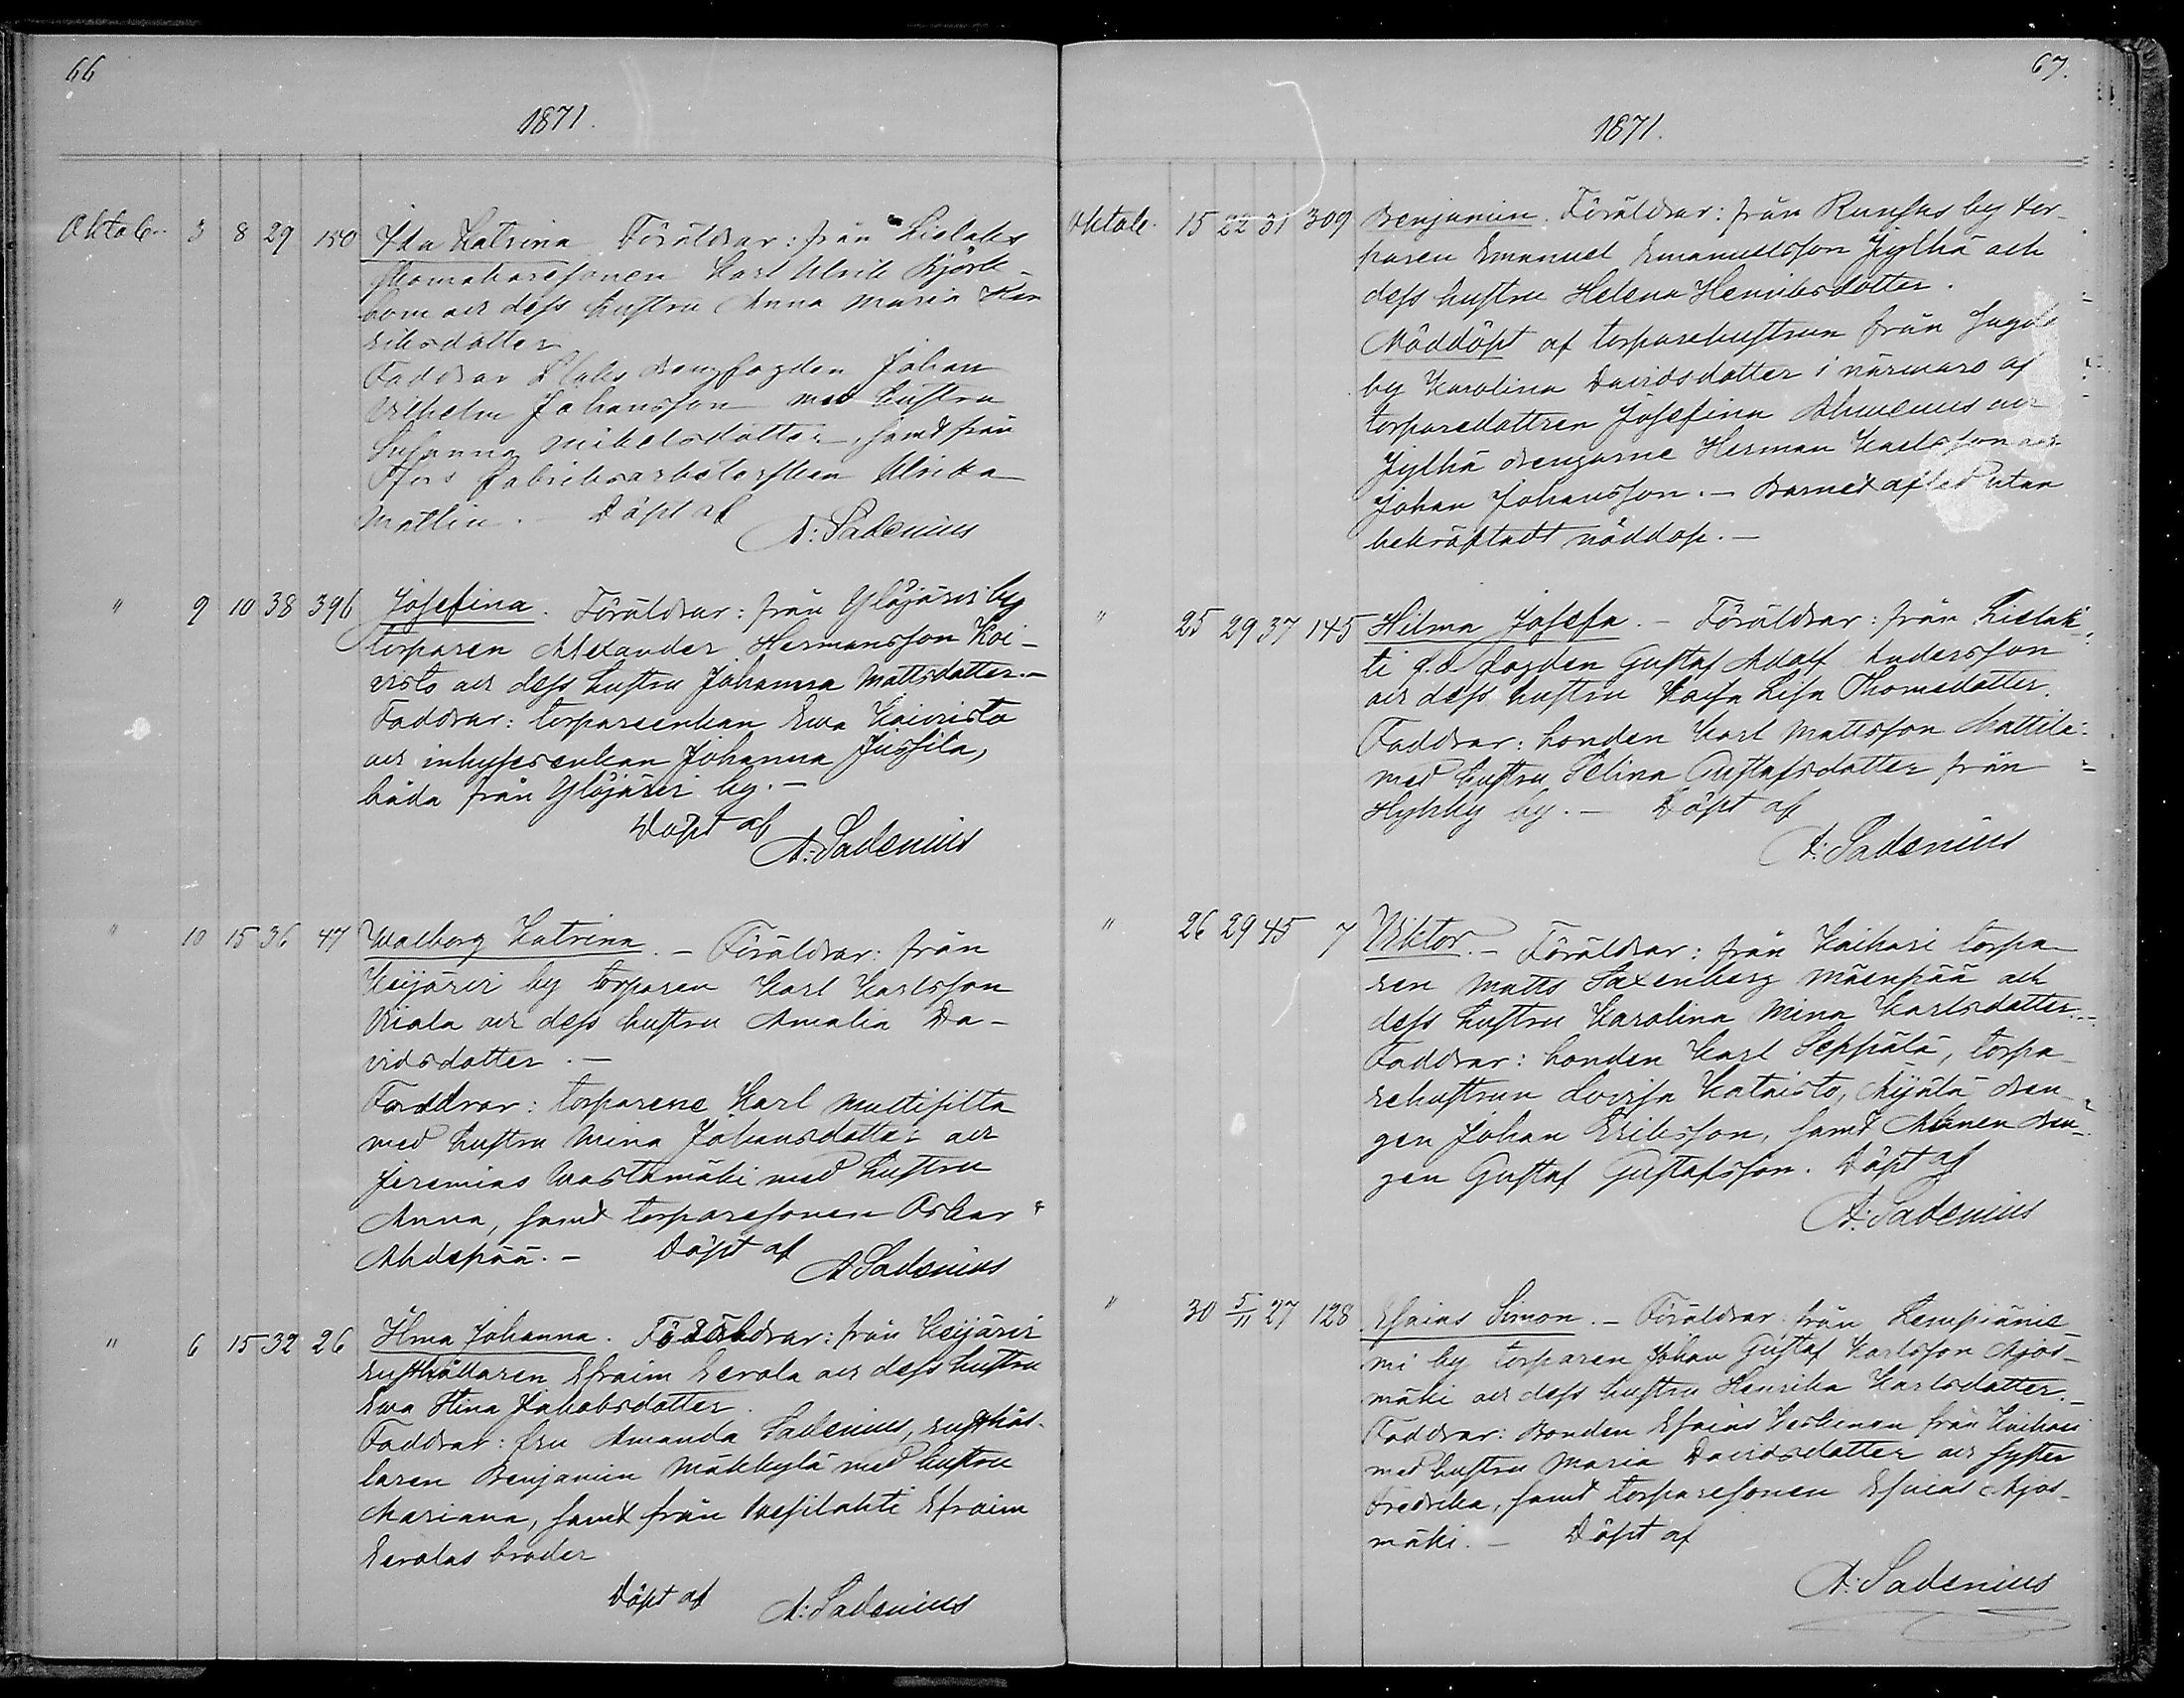 66
1871.
Oktob. 3 8 29 150 Ida Katrina Föräldrar: från Lielaks
skomakaresonen Karl Ulrik Björk-
bom och dess hustru Anna Maria
Eriksdotter
Faddrar drengfogden Johan
Vilhelm Johansson med hustru
Susanna Mikelsdotter, samt från
fabriksarbeterskan Ulrika
Matlin. Döpt af
A: Sadenius
" 9 10 38 396 Josefina. Föräldrar: från Ylöjärvi by
torparen Alexander Hermansson Koi-
visto och dess hustru Johanna Mattsdotter.-
Faddrar: torpareenkan Eva Koivisto
och inhysesenkan Johanna Jussila,
båda från Ylöjärvi by.-
Döpt af
A: Sadenius
" 10 15 36 47 Walborg Katrina.- Föräldrar: från
Keijärvi by torparen Karl Karlsson
Viala och dess hustru Amalia Da-
vidsdotter.-
Faddrar: torparene Karl Mattisilta
med hustru Mina Johansdotter och
Jeremias Wastamäki med hustru
Anna, samt torparesonen Oskar
Ahdepää.- Döpt af
A Sadenius
" 6 15 32 26 Ilma Johanna. Föräldrar: från Keijärvi
rusthållaren Efraim Eerola och dess hustru
Eva Stina Jakobsdotter.
Faddrar: fru Amanda Sadenius, rusthål-
laren Benjamin Mäkkylä med hustru
Mariana, samt från Vesilahti Efraim
Eerolas broder
Döpt af A: Sadenius
67.
1871.
Oktob. 15 22 31 309 Benjamin. Föräldrar: från Runsas by tor-
paren Emanuel Emanuelsson Jylhä och
dess hustru Helena Henriksdotter.
Nöddöpt af torparehustrun från
by Karolina Davidsdotter i närvaro af
torparedottren Josefina Ahlmenus och
Jylhä drengarne Herman Karlsson och
Johan Johansson.- Barnet afled utan
bekräftadt nöddop.-
" 25 29 37 145 Hilma Josefa.- Föräldrar: från Lielak-
ti f.d. fogden Gustaf Adolf Andersson
och dess hustru Kajsa Lisa Thomasdotter.
Faddrar: bonden Karl Mattsson Mattila
med hustru Selina Gustafsdotter från
Hyhky by.- Döpt af
A: Sadenius
" 26 29 45 7 Viktor.- Föräldrar: från Kaihari torpa-
ren Matts Saxenberg Mäenpää och
dess hustru Karolina Mina Karlsdotter.-
Faddrar: bonden Karl Seppälä, torpa-
rehustrun Lovisa Kataisto, Äijälä dren-
gen Johan Eriksson, samt Ahlmen dren-
gen Gustaf Gustafsson. Döpt af
A: Sadenius
" 30 5/11 27 128 Esaias Simon.- Föräldrar från Lempiänie-
mi by torparen Johan Gustaf Karlsson Ajos-
mäki och dess hustru Henrika Karlsdotter.-
Faddrar: Bonden Esaias Keskinen från Kaihari
med hustru Maria Davidsdotter och syster
Fredrika, samt torparesonen Esaias Ajos-
mäki.- Döpt af
A: Sadenius